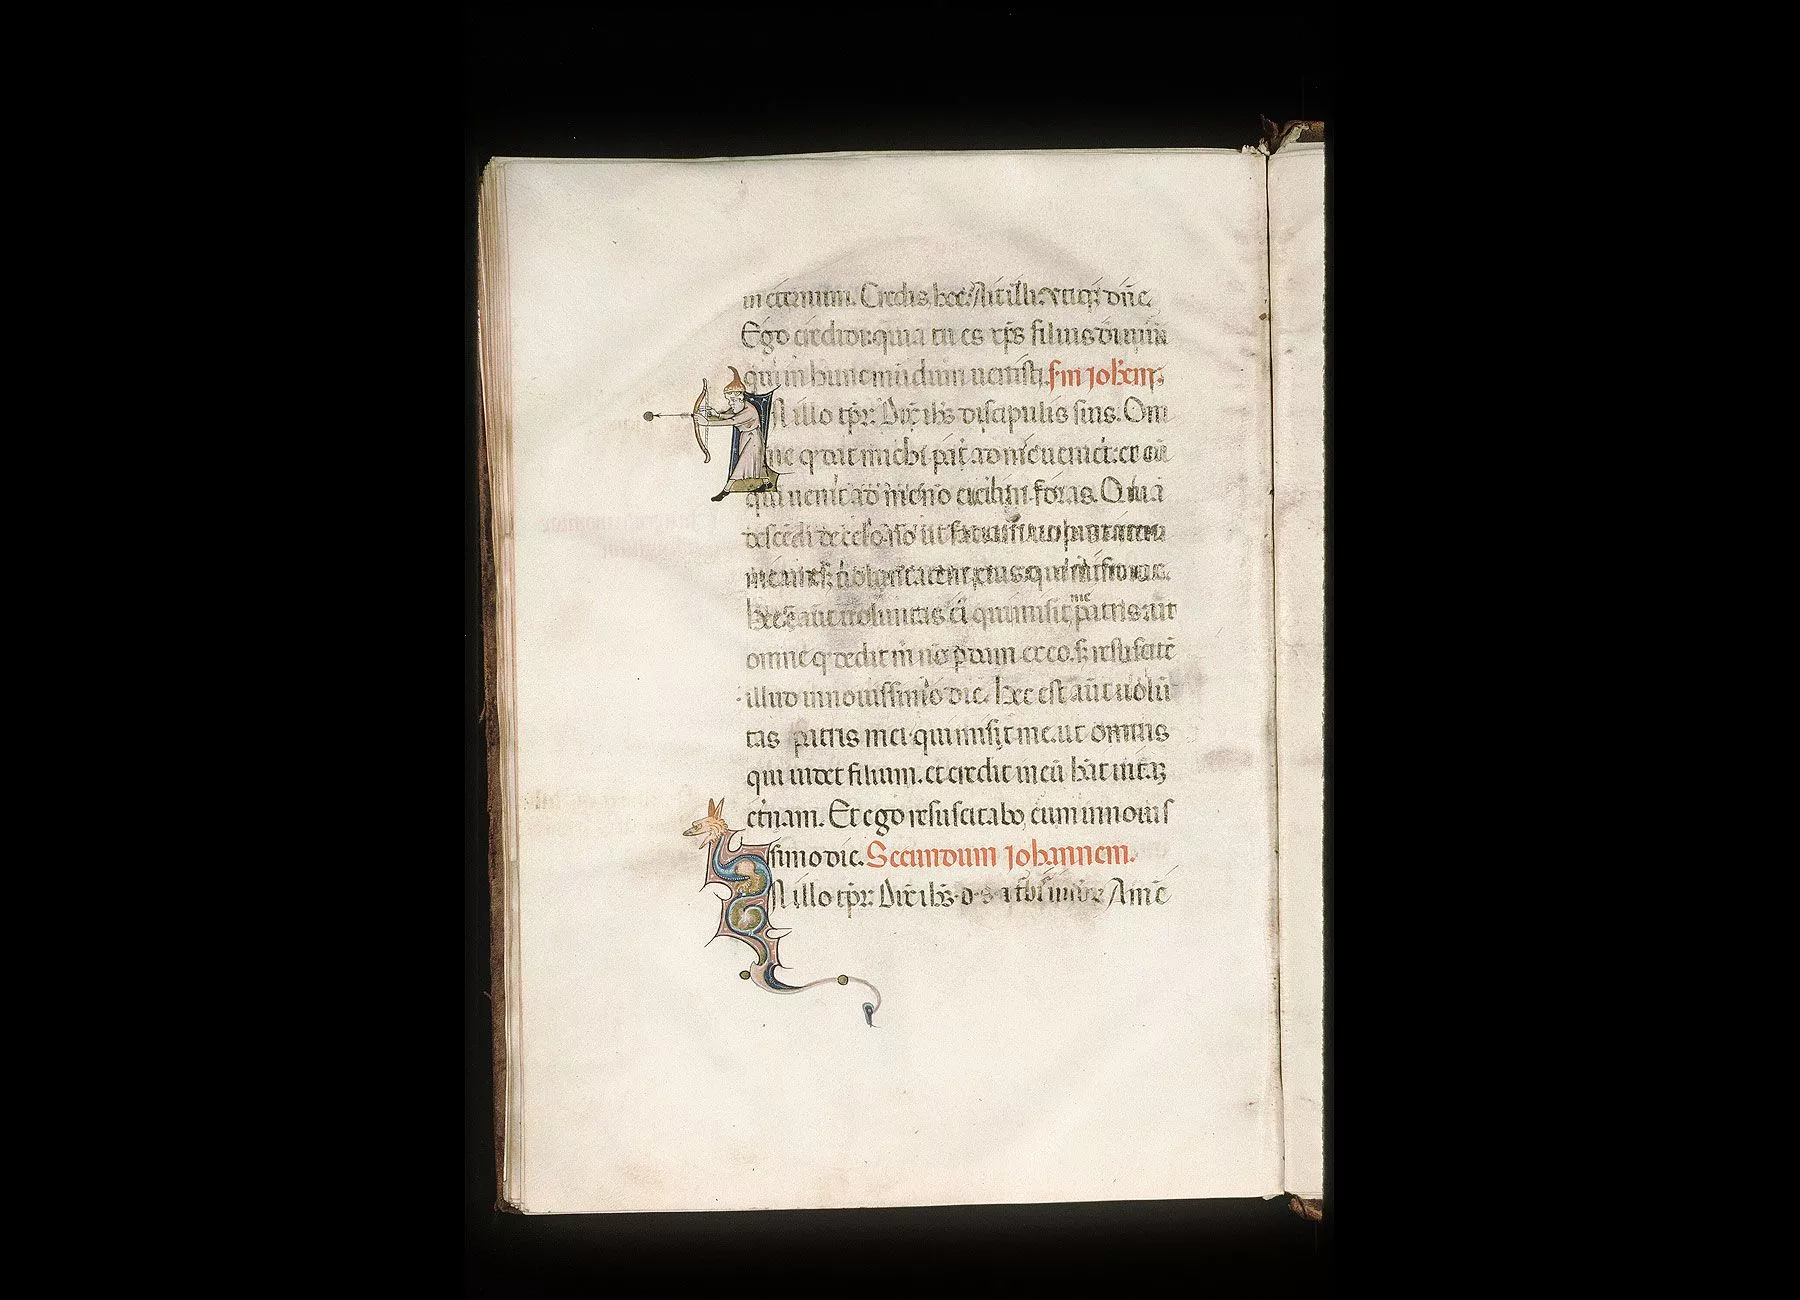 in eternum. Credis hoc? Ait illi. utiqꝫ dn̄e.
Ego credidi quia tu es xp̄s filius dī uiui
qui in hunc mūdum uenisti. s. in ioh̄em.
In illo tp̄r. Dix̄ ih̄s discipulis suis. Om
ne qᵈ dat michi pat̄ ad me ueniet. et eū
qui uenit ad me nō eiciam foras. Quia
descēdi de celo. nō ut faciam uoluntatem
meam sꝫ uoluntatem eius qui misit me.
Hec ē aūt uoluntas ei qui misit me patris. ut
omne qᵈ dedit m nō ꝑdam ex eo. sꝫ resuscitē
illud in nouissimo die. Hec est aūt uolū
tas patris mei qui misit me. ut omnis
qui uidet filium. et credit in eū habeat uitā
et̄nam. Et ego resuscitabo eum in nouis
simo die. Secundum iohannem.
In illo tp̄r. Dix̄ ih̄s. d. s. Amē